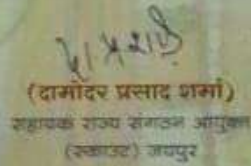 (दामोदर प्रसाद शर्मा)
सहायक राज्य संगठन आयुक्त
(स्काउट) जयपुर